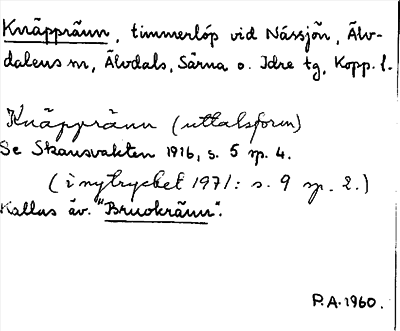 Knäpprånn, timmerlöp vid Nässjön, Älv-
dalens m, Älvdals, Särna o. Idre tg, Kopp. l.
Knäpprånn (uttalsform)
Se Skansvakten 1916, s. 5 sp. 4.
(i nytrycket 1971: s. 9 sp. 2.)
Kallas äv. "Bruokrånn".
P.A. 1960.